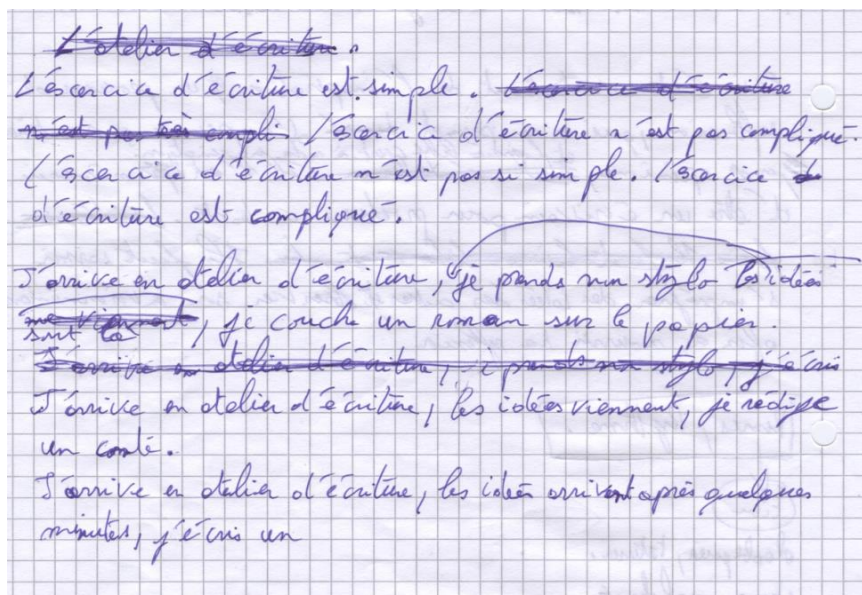 L'atelier d'écriture.
L'éxercice d'écriture est simple. L'éxercice d'écriture
n'est pas très compli L'éxercice d'écriture n'est pas compliqué.
L'éxercice d'écriture n'est pas si simple. L'éxercice d
d'écriture est compliqué.
J'arrive en atelier d'écriture, je prends mon stylo les idées
me viennent, je couche un roman sur le papier.
sont là
J'arrive en atelier d'écriture, je prends mon stylo, j'écris
J'arrive en atelier d'écriture, les idées viennent, je rédige
un conte.
J'arrive en atelier d'écriture, les idées arrivent après quelques
minutes, j'écris un